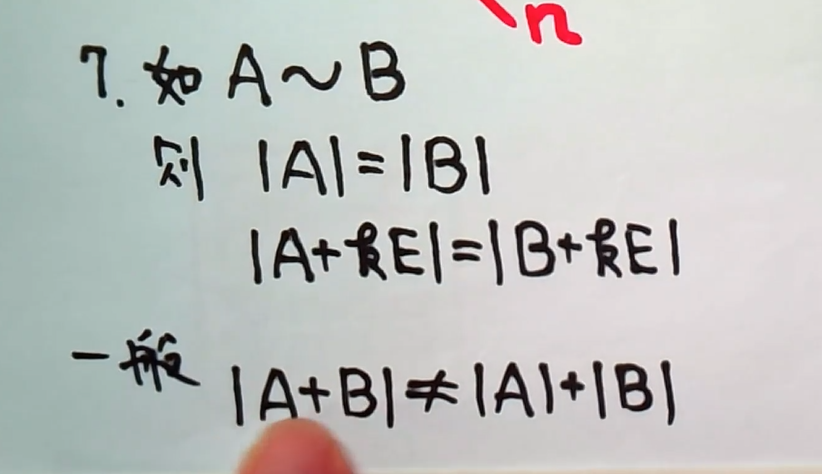 n
7. 如 A∼B
则 |A|=|B|
|A+kE|=|B+kE|
一般 |A+B|≠|A|+|B|